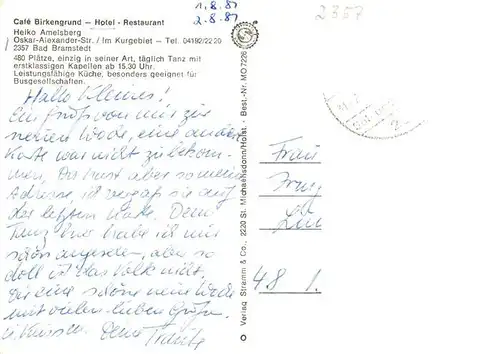 1.8.87
2.8.87
2357
Café Birkengrund — Hotel - Restaurant
Heiko Amelsberg
Oskar-Alexander-Str. / Im Kurgebiet — Tel. 04192/2220
2357 Bad Bramstedt
480 Plätze, einzig in seiner Art, täglich Tanz mit
erstklassigen Kapellen ab 15.30 Uhr.
Leistungsfähige Küche, besonders geeignet für
Busgesellschaften.
Hallo Kleines!
Ein Gruß von mir zur
neuen Woche, eine andere
Karte war nicht zu bekom-
men, Du hast aber so meine
Adresse, ich vergaß sie auf
der letzten Karte. Dein
Tanz habe ich mir
schon angesehen, aber so
doll ist das Volk nicht,
Dir eine schöne neue Woche
mit vielen lieben Grüßen
u. Küssen. Deine Traute
Verlag Stramm & Co., 2220 St. Michaelisdonn/Holst. · Best.-Nr. MO 7226
Frau
48 1.